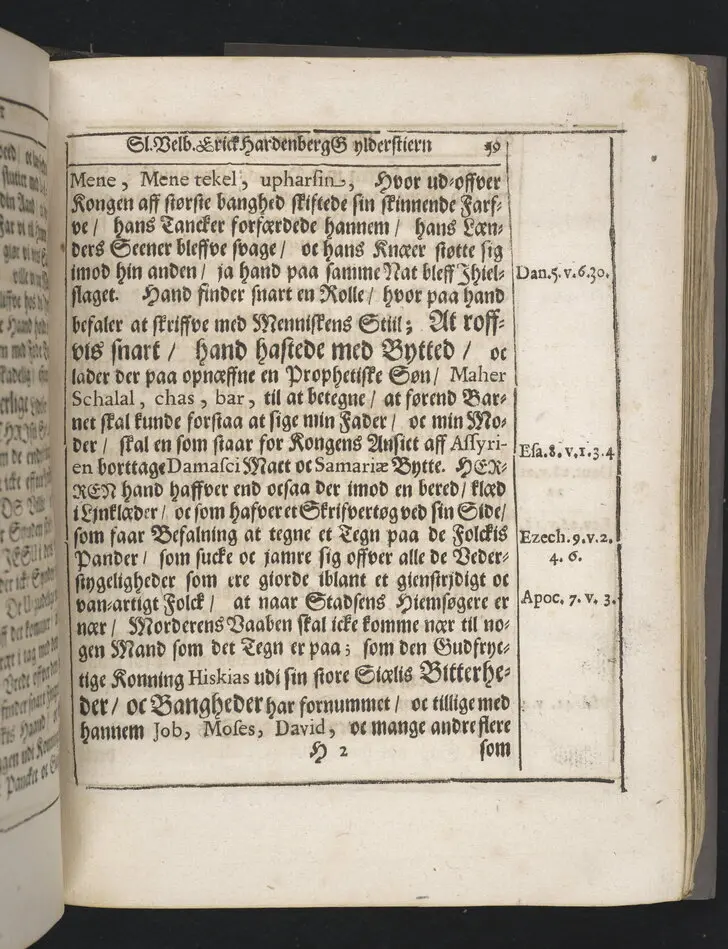 Sl. Velb. Erick Hardenberg G ylderstiern 59
Mene, Mene tekel, upharsin, Hvor ud-offver
Kongen aff største banghed skiftede sin skinnende Farf-
ve / hans Tancker forfærdede hannem / hans Læn-
ders Seener bleffve svage / oc hans Knæer støtte sig
imod hin anden / ja hand paa samme Nat bleff Jhiel-
slaget. Hand finder snart en Rolle / hvor paa hand
befaler at skriffve med Menniskens Stiil; At roff-
vis snart / hand hastede med Bytted / oc
lader der paa opnæffne en Prophetiske Søn / Maher
Schalal, chas, bar, til at betegne / at førend Bar-
net skal kunde forstaa at sige min Fader / oc min Mo-
der / skal en som staar for Kongens Ansict aff Assyri-
en borttage Damasci Mact oc Samariæ Bytte. HER-
REN hand haffver end ocsaa der imod en bered / klæd
i Linklæder / oc som hafver et Skrifvertøg ved sin Side /
som faar Befalning at tegne et Tegn paa de Folckis
Pander / som sucke oc jamre sig offver alle de Veder-
stygeligheder som ere giorde iblant et gienstrjdigt oc
van-artigt Folck / at naar Stadsens Hiemsøgere er
nær / Morderens Vaaben skal icke komme nær til no-
gen Mand som det Tegn er paa; som den Gudfryc-
tige Konning Hiskias udi sin store Siælis Bitterhe-
der / oc Bangheder har fornummet / oc tillige med
hannem Job, Moses, David, oc mange andre flere
H 2 som
Dan. 5. v. 6. 30.
Esa. 8. v. 1. 3. 4
Ezech. 9. v. 2.
4. 6.
Apoc. 7. v. 3.